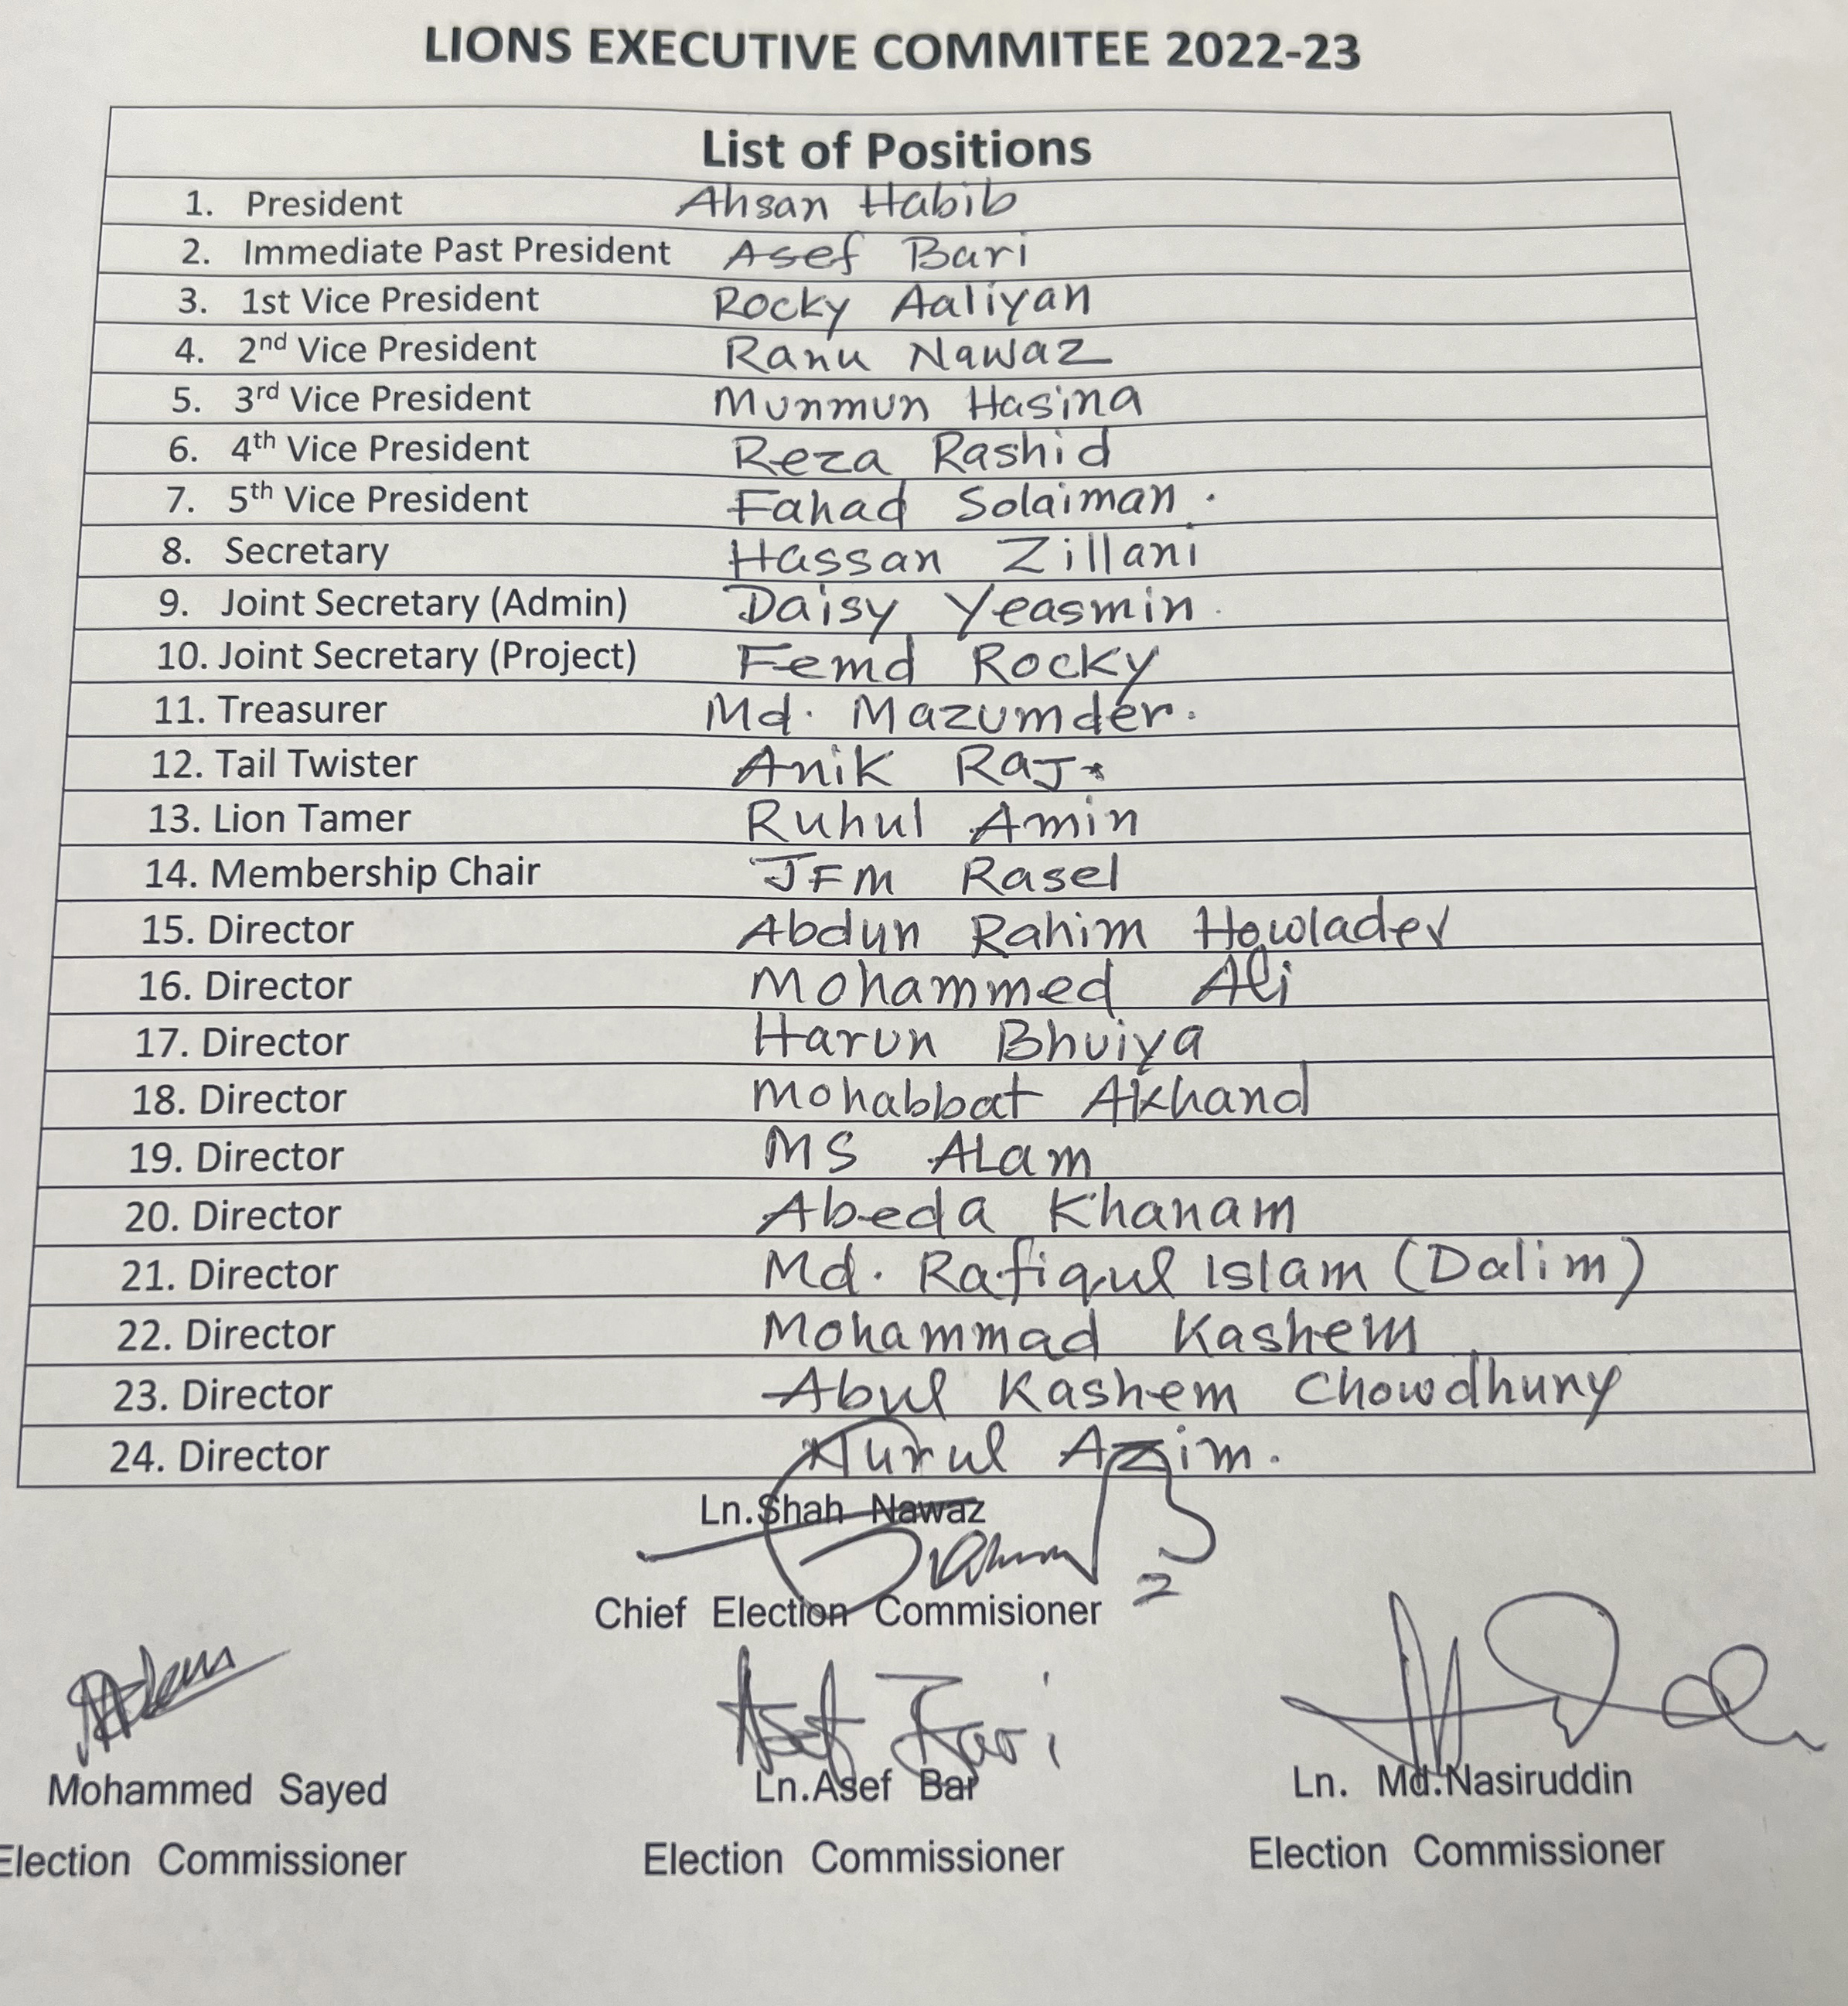 LIONS EXECUTIVE COMMITEE 2022-23
List of Positions
1. President Ahsan Habib
2. Immediate Past President Asef Bari
3. 1st Vice President Rocky Aaliyan
4. 2nd Vice President Ranu Nawaz
5. 3rd Vice President Munmun Hasina
6. 4th Vice President Reza Rashid
7. 5th Vice President Fahad Solaiman.
8. Secretary Hassan Zillani
9. Joint Secretary (Admin) Daisy Yeasmin.
10. Joint Secretary (Project) Femd Rocky
11. Treasurer Md. Mazumder.
12. Tail Twister Anik Raj
13. Lion Tamer Ruhul Amin
14. Membership Chair JFM Rasel
15. Director Abdur Rahim Howlader
16. Director Mohammed Ali
17. Director Harun Bhuiya
18. Director Mohabbat Akhand
19. Director MS ALam
20. Director Abeda Khanam
21. Director Md. Rafiqul Islam (Dalim)
22. Director Mohammad Kashem
23. Director Abul Kashem Chowdhury
24. Director Nurul Azim.
Ln.Shah Nawaz
Chief Election Commisioner
Asef Bari
Mohammed Sayed Ln.Asef Bar Ln. Md.Nasiruddin
Election Commissioner Election Commissioner Election Commissioner